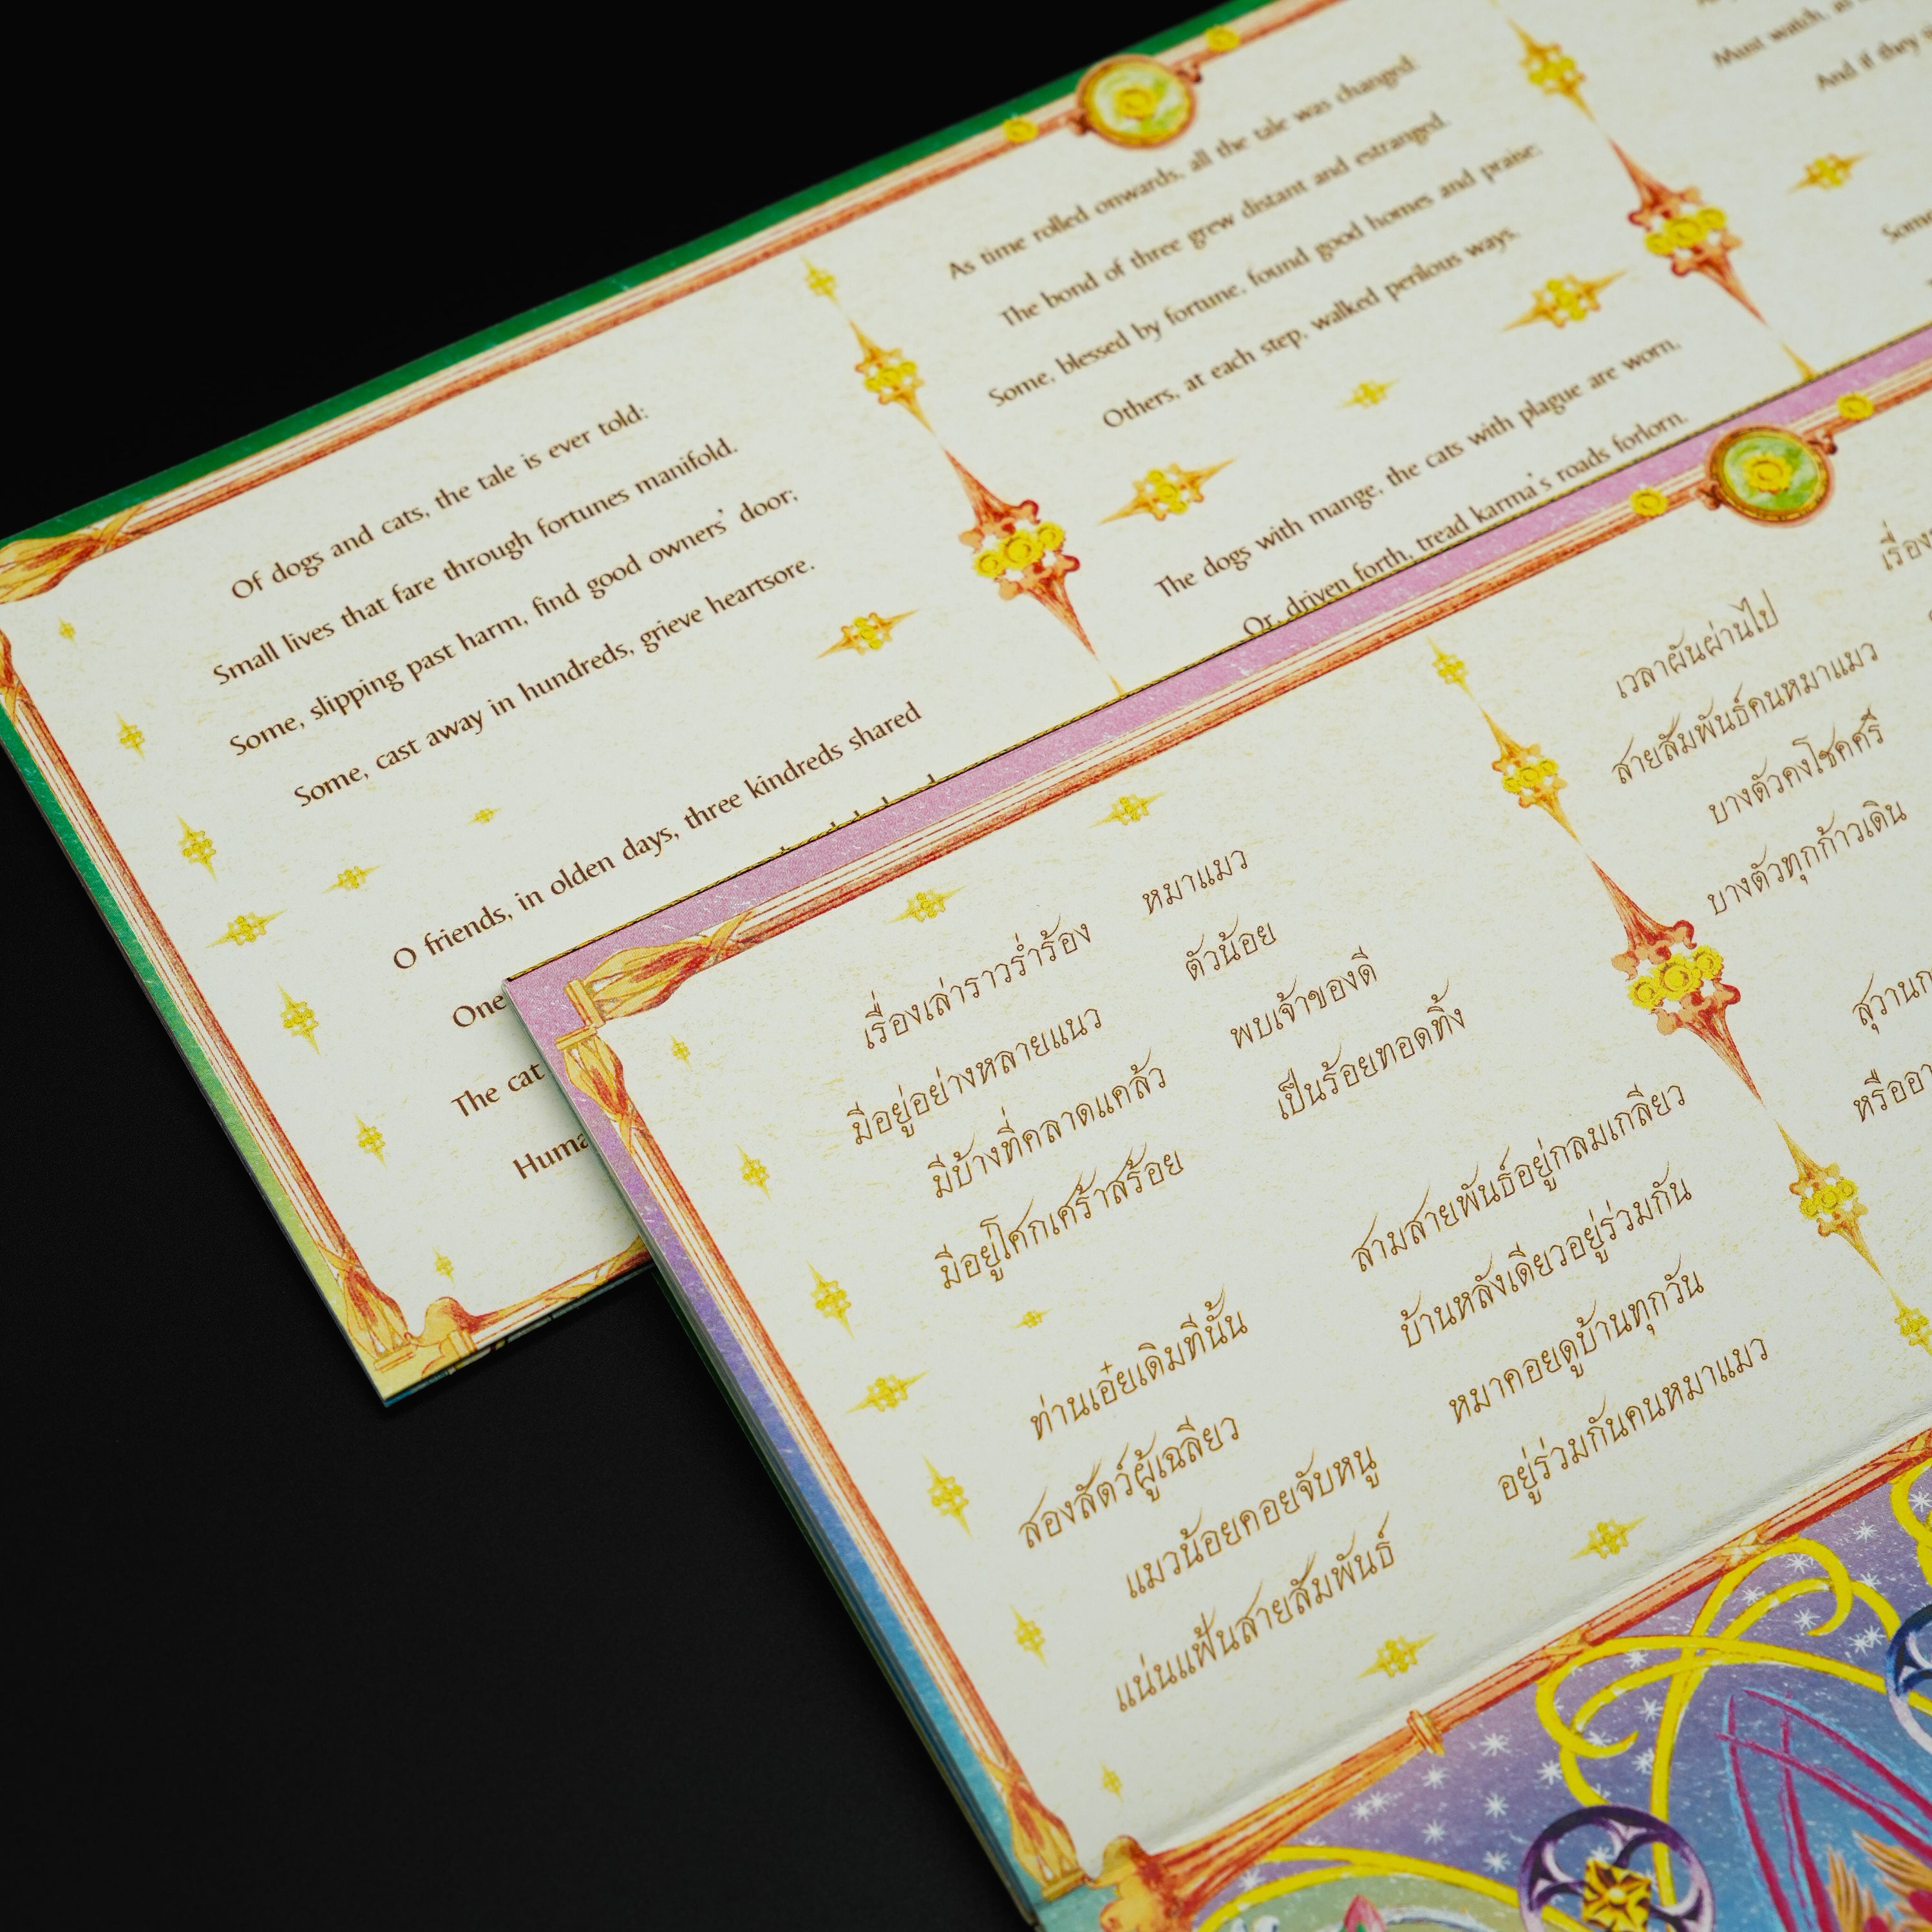 Of dogs and cats, the tale is ever told:
Small lives that fare through fortunes manifold.
Some, slipping past harm, find good owners' door;
Some, cast away in hundreds, grieve heartsore.
O friends, in olden days, three kindreds shared
One
The cat
Huma
As time rolled onwards, all the tale was changed:
The bond of three grew distant and estranged.
Some, blessed by fortune, found good homes and praise;
Others, at each step, walked perilous ways.
The dogs with mange, the cats with plague are worn,
Or, driven forth, tread karma's roads forlorn.
Must watch, as
And if they
Som
เรื่องเล่าราวร่ำร้อง หมาแมว
มีอยู่อย่างหลายแนว ตัวน้อย
มีบ้างที่คลาดแคล้ว พบเจ้าของดี
มีอยู่โศกเศร้าสร้อย เป็นร้อยทอดทิ้ง
ท่านเอ๋ยเดิมทีนั้น สามสายพันธ์อยู่กลมเกลียว
สองสัตว์ผู้เฉลียว บ้านหลังเดียวอยู่ร่วมกัน
แมวน้อยคอยจับหนู หมาคอยดูบ้านทุกวัน
แน่นแฟ้นสายสัมพันธ์ อยู่ร่วมกันคนหมาแมว
เวลาผันผ่านไป เรื่อง
สายสัมพันธ์คนหมาแมว
บางตัวคงโชคศรี
บางตัวทุกก้าวเดิน
สุวาน
หรืออา